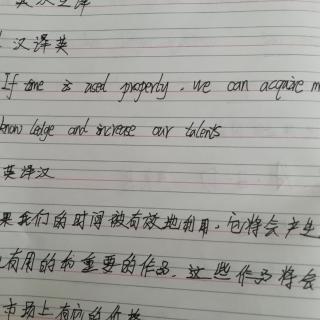 英汉互译
汉译英
If time is used properly, we can acquire m
knowledge and increase our talents
英译汉
果我们的时间被有效地利用,它将会产生
有用的和重要的作品,这些作品将会
市场上有